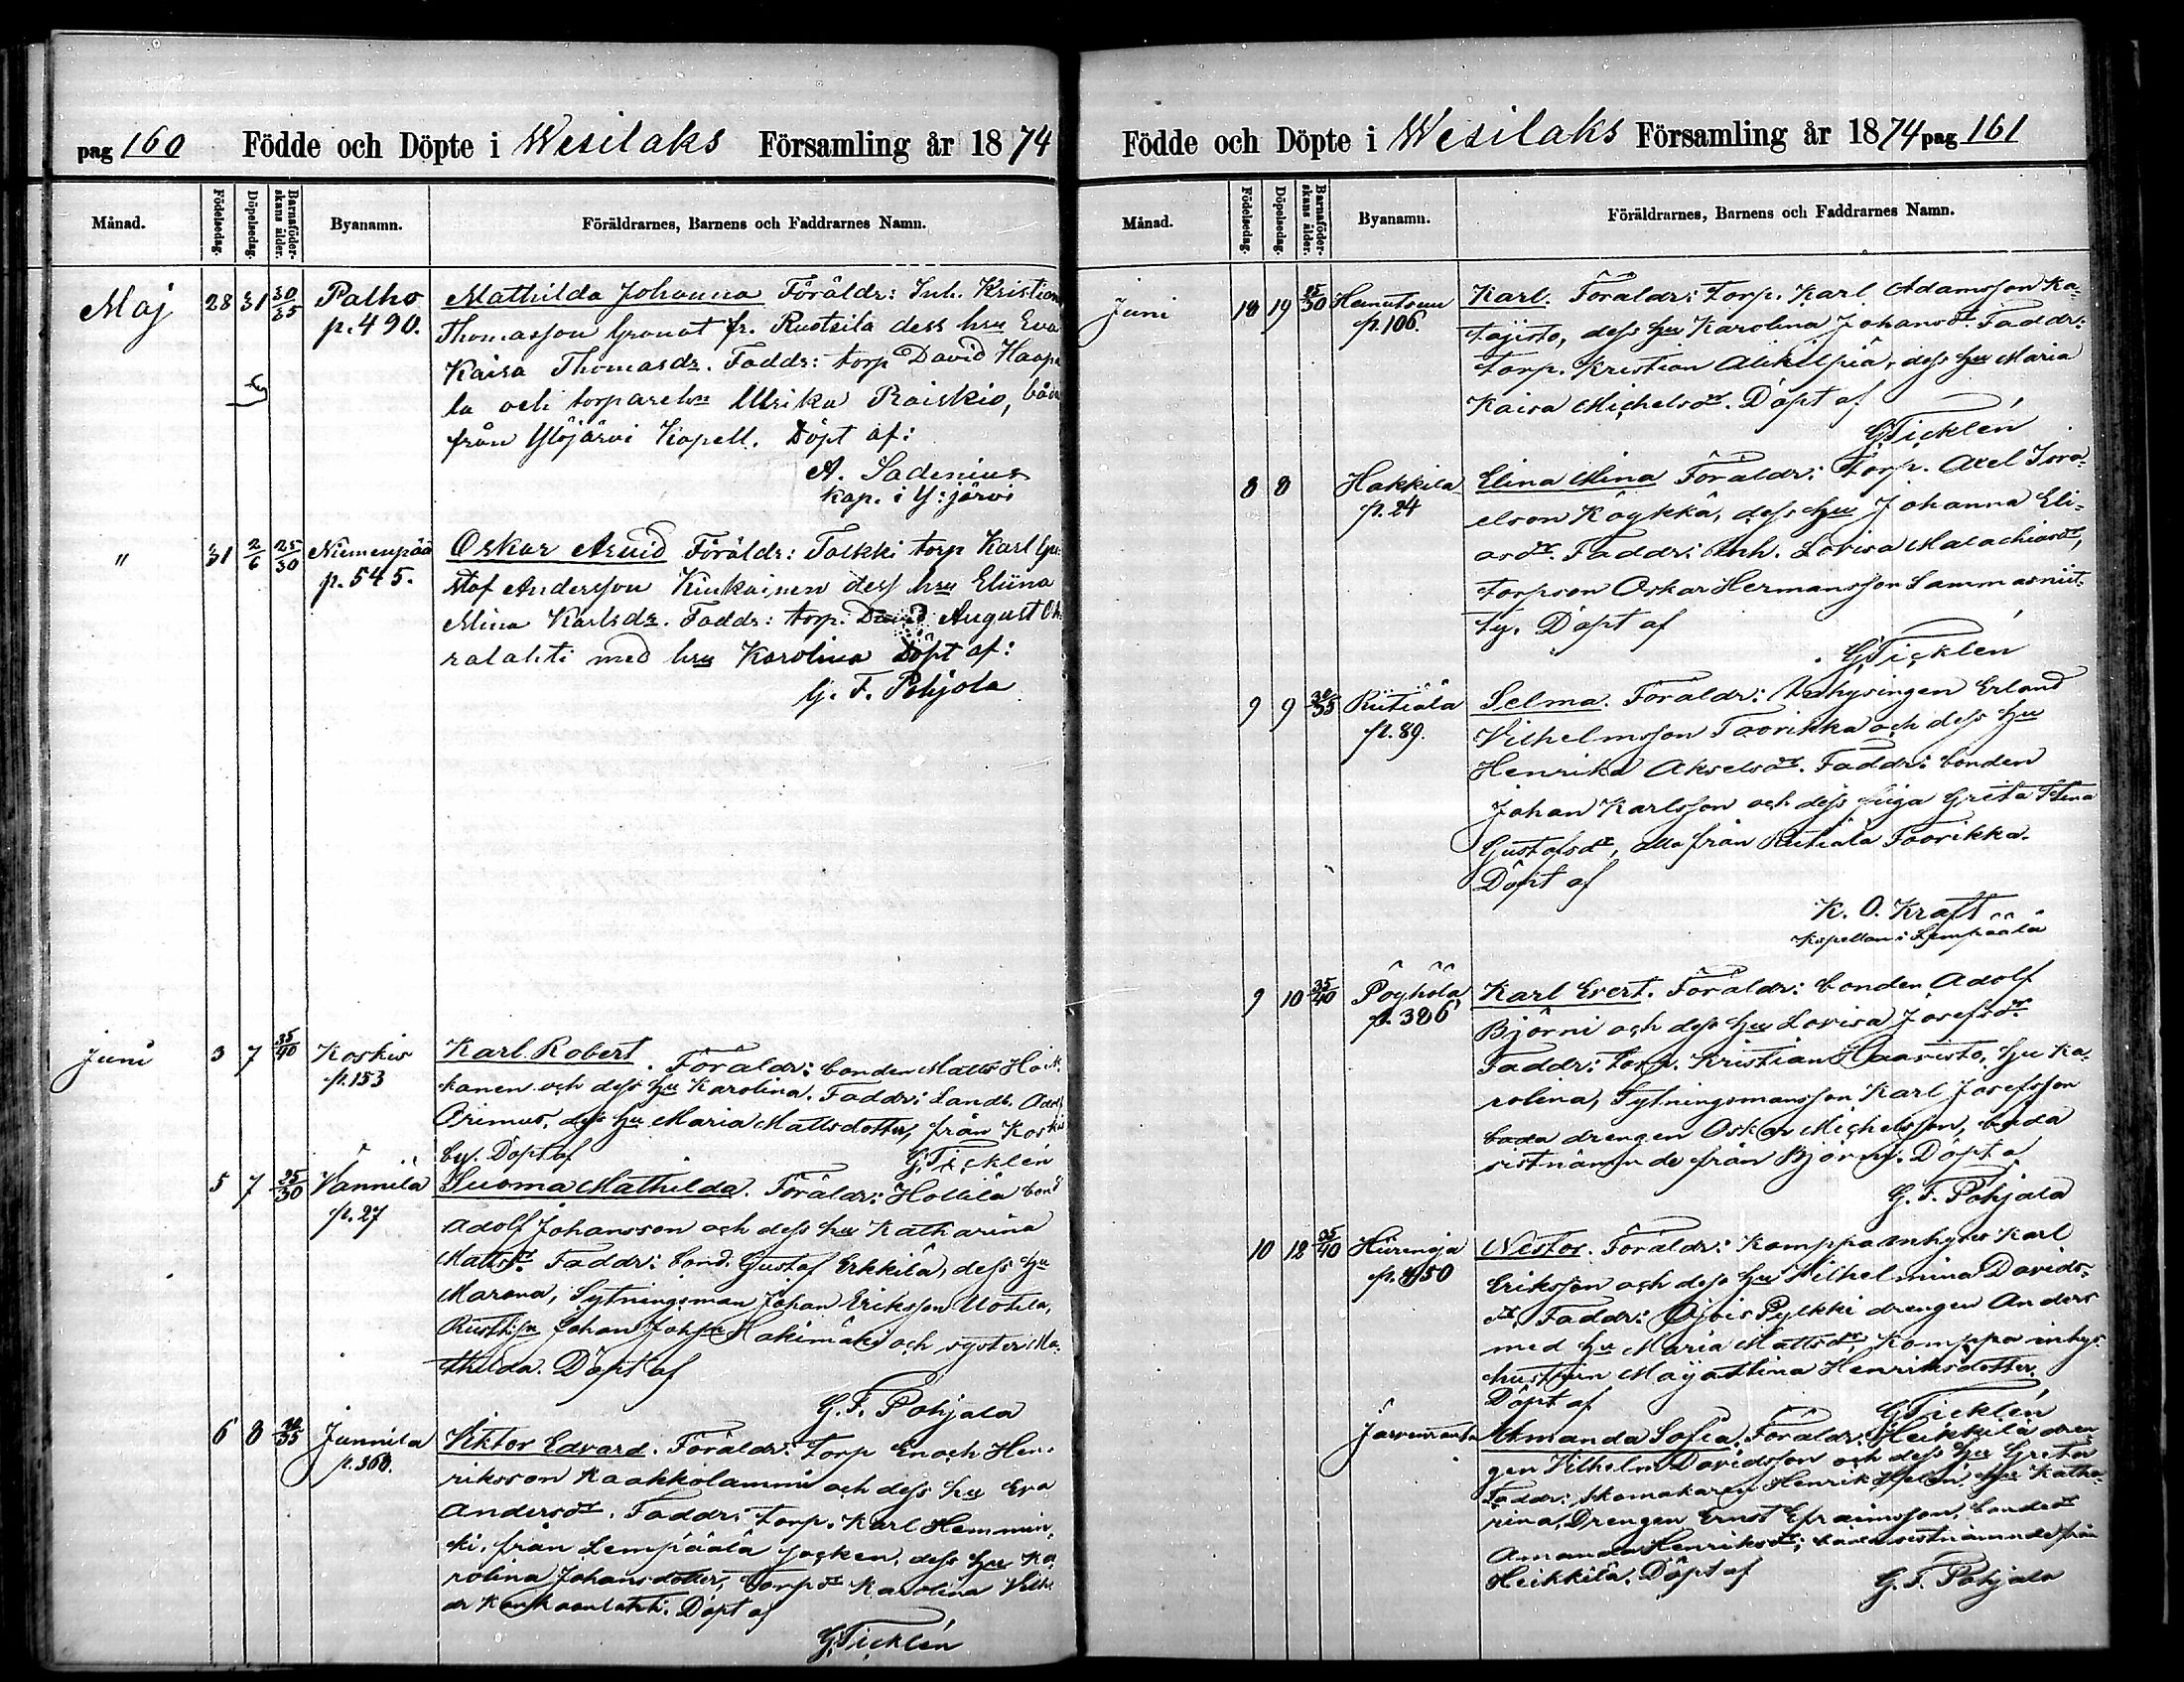 pag 160 Födde och Döpte i Wesilaks Församling år 1874
Månad. Födelsedag. Döpelsedag. Barnaföderskans ålder. Byanamn. Föräldrarnes, Barnens och Faddrarnes Namn.
Maj 28 31 30/35 Palho Mathilda Johanna Föräldr: Inh. Kristian
p. 490. Thomasson Granat fr. Rustsila dess hru Eva
Kaisa Thomasdr. Faddr: torp David Haapa
la och torpare hru Ulrika Raiskio, båda
från Ylöjärvi Kapell. Döpt af:
A. Sadenius
Kap. i Y:järvi
" 31 2/6 25/30 Niemenpää Oskar Arvid Föräldr: Tolkki torp Karl Gu
p. 545. staf Andersson Kinkainen dess hru Eliina
Mina Karlsdr. Faddr: torp. David August
ralahti med hru Karolina Döpt af:
G. F. Pohjala
Juni 3 7 35/40 Koskis Karl Robert. Föräldr: bonden Matts Hoik
p. 153 kanen och dess hu Karolina. Faddr: Landb. Adolf
Primus, dess hu Maria Mattsdotter, från Koskis
by. Döpt af G. Ticklén
5 7 25/30 Vännilä Suoma Mathilda. Föräldr: Hollila bond
p. 27 Adolf Johansson och dess hu Katharina
Mattsdr. Faddr: bond. Gustaf Erkkilä, dess hu
Marena, Sytningsman Johan Eriksson Uotila,
Rusth.sn Johan Johsn Hakimäki och syster Ma-
thilda. Döpt af
G. F. Pohjala
6 8 30/35 Junnila Viktor Edvard. Föräldr: Torp Enoch Hen-
p. 368. riksson Kaakkolammi och dess hu Eva
Andersdr. Faddr: Torp. Karl Hemmin-
ki, från Lempäälä socken, dess hu Ka
rolina Johansdotter, Torpdr Karolina Vilh
dr Döpt af
G. Ticklén
Födde och Döpte i Wesilaks Församling år 1874 pag 161
Månad. Födelsedag. Döpelsedag. Barnaföderskans ålder. Byanamn. Föräldrarnes, Barnens och Faddrarnes Namn.
Juni 18 19 25/30 Hanutsuu Karl. Föräldr: Torp. Karl Adamsson Ka-
p. 106. tajisto, dess hu Karolina Johansdr. Faddr:
torp. Kristian Alikilpiä, dess hu Maria
Kaisa Michelsdr. Döpt af
G. Ticklén
8 8 Hakkila Elina Mina Föräldr: Torp. Axel Isra-
p. 24 elson Köykkä, dess hu Johanna Eli-
asdr. Faddr: Inh. Lovisa Malachiasdr,
torpson Oskar Hermansson Sammasniit-
ty. Döpt af
G. Ticklén
9 9 30/35 Riitiälä Selma. Föräldr: Inhysingen Erland
p. 89. Vilhelmsson Toorikka och dess hu
Henrika Akselsdr. Faddr: bonden
Johan Karlsson och dess piga Greta Stina
Gustafsdr, alla från Riitiälä Toorikka.
Döpt af
K. O. Kraft
Kapellan i Lempäälä
9 10 35/40 Pöyhölä Karl Evert. Föräldr: bonden Adolf
p. 386 Björni och dess hu Lovisa Josefsdr.
Faddr: torp. Kristian Haavisto, hu Ka-
rolina, Sytningsmansson Karl Josefsson
bada drengen Oskar Michelsson, bada
sistnämnde från Björni. Döpt a
G. F. Pohjala
10 12 35/40 Hiirenoja Nestor. Föräldr: Komppa inhyses Karl
p. 450 Eriksson och dess hu Vilhelmina Davids-
dr. Faddr: Pylkki drengen Anders
med hu Maria Mattsdr, Komppa inhys.
hustrun Maja Stina Henriksdotter.
Döpt af G. Ticklén
Järvenranta Amanda Sofia. Föräldr: Heikkilä dren
gen Vilhelm Davidsson och dess hu Greta
Faddr: skomakaren Henrik Helen hu Katha-
rina, Drengen Ernst Efraimsson, bondedr
Amanda Henriksdr; båda sistnämnde från
Heikkilä. Döpt af G. F. Pohjala